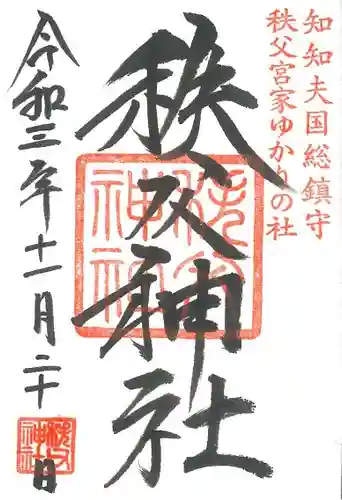 知知夫国総鎮守
秩父宮家ゆかりの社
秩父神社
秩父
神社
令和三年十一月二十日
秩父
神社